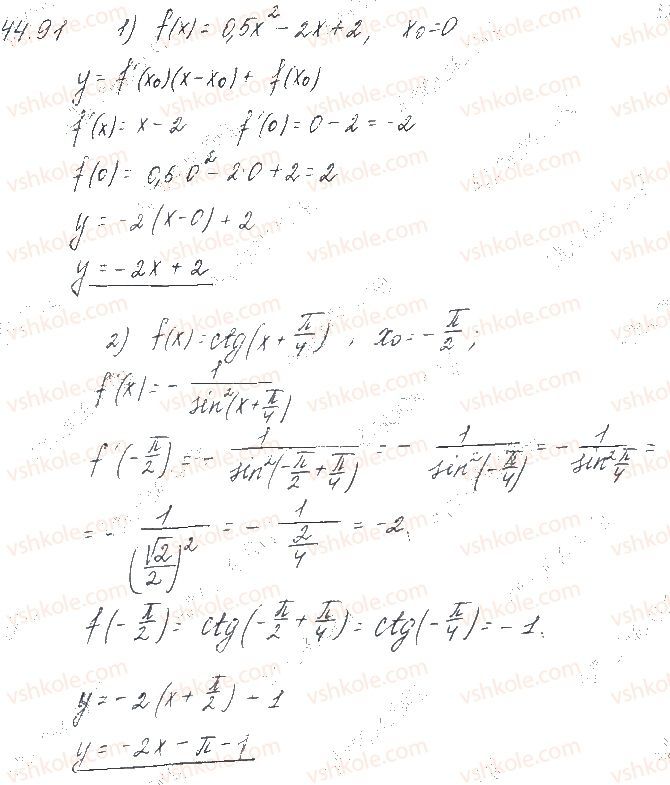 44.91 1) f(x) = 0,5x² - 2x + 2, x₀ = 0
y = f'(x₀)(x - x₀) + f(x₀)
f'(x) = x - 2 f'(0) = 0 - 2 = -2
f(0) = 0,5·0² - 2·0 + 2 = 2
y = -2(x - 0) + 2
y = -2x + 2
2) f(x) = ctg(x + π/4), x₀ = -π/2;
f'(x) = - 1/sin²(x + π/4)
f'(-π/2) = - 1/sin²(-π/2 + π/4) = - 1/sin²(-π/4) = - 1/sin² π/4 =
= - 1/(√2/2)² = - 1/(2/4) = -2.
f(-π/2) = ctg(-π/2 + π/4) = ctg(-π/4) = -1.
y = -2(x + π/2) - 1
y = -2x - π - 1
vshkole.com